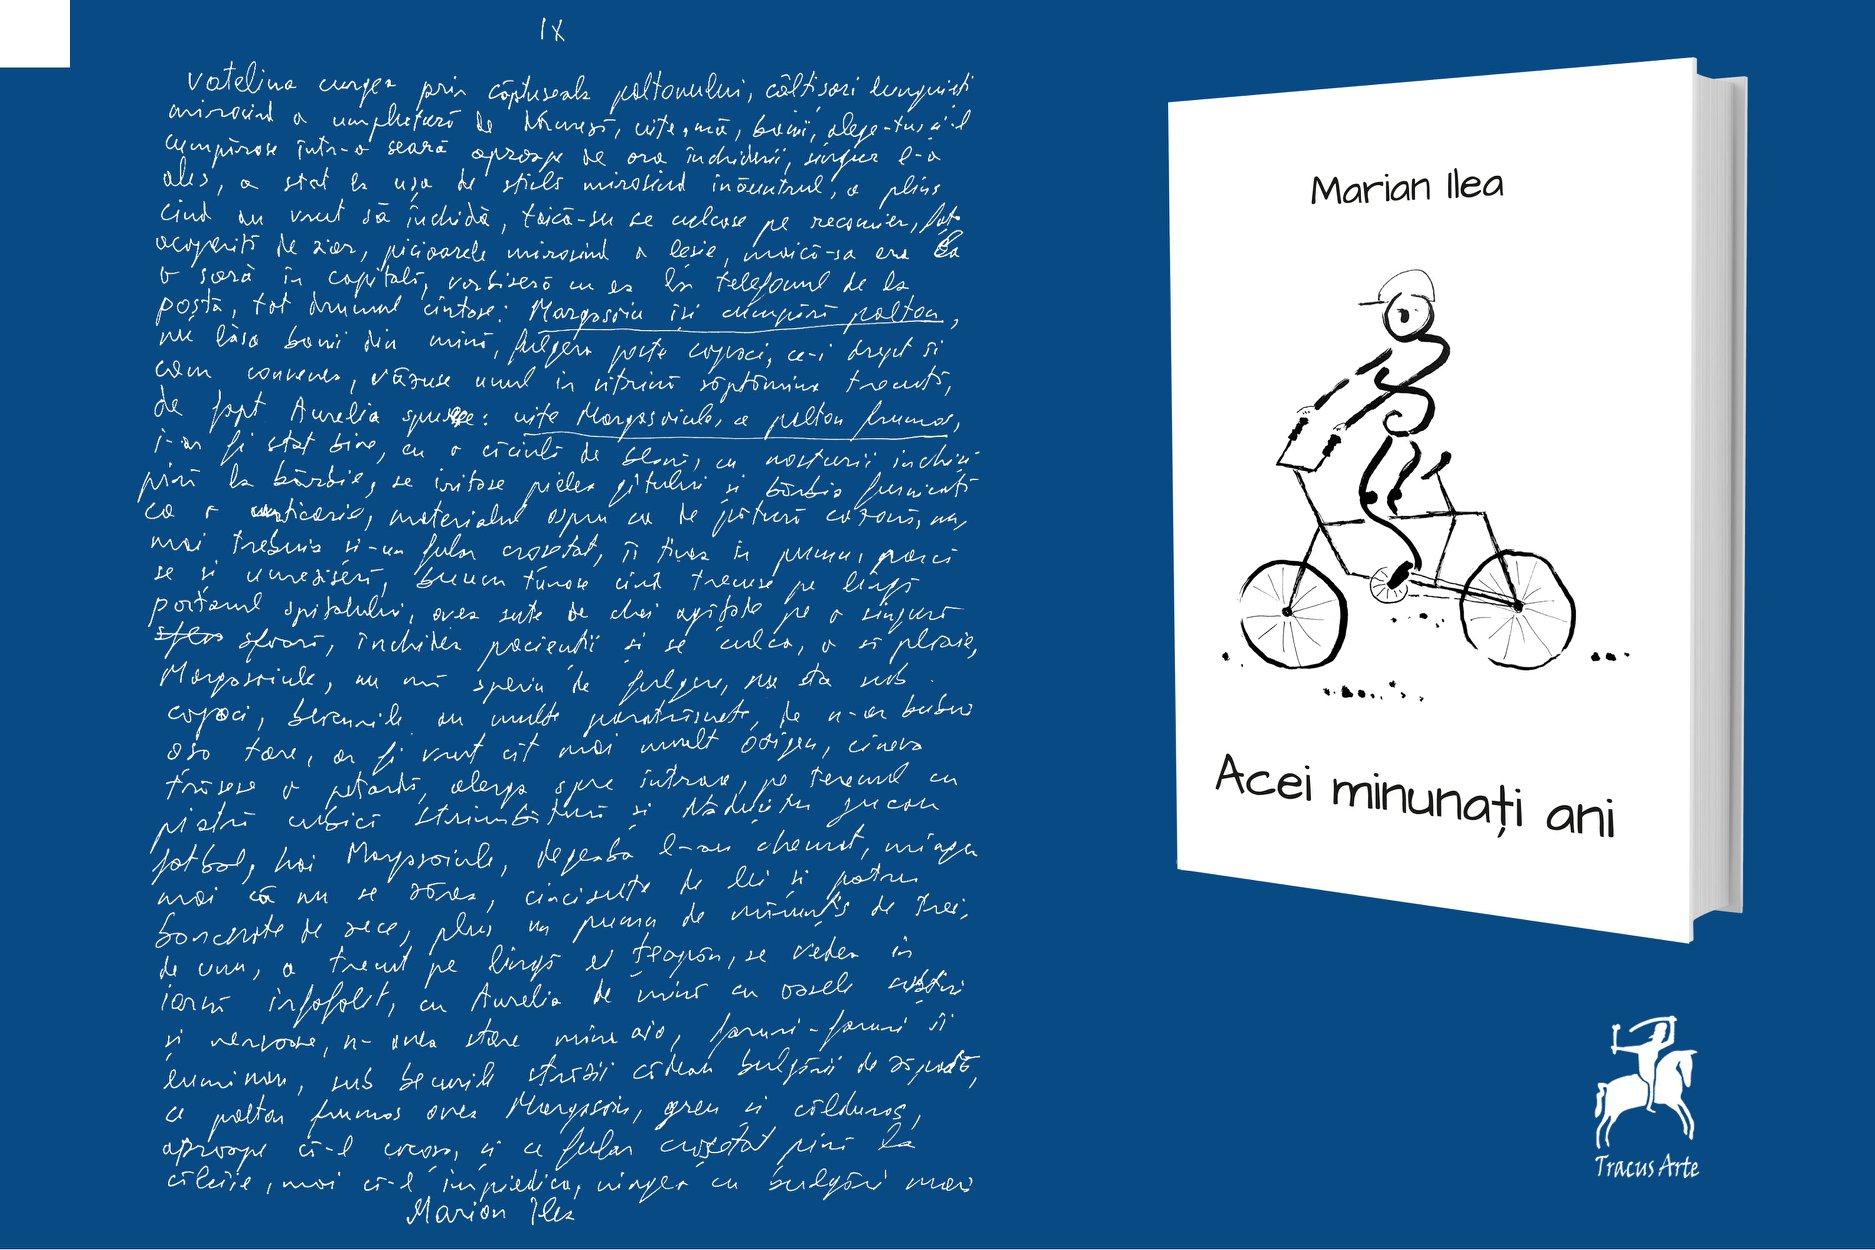 IX
vatelina curgea prin căptușeala paltonului, câlți șori lunguieți
mirosind a umplutură de, uite, mă, banii, alege-tu și-l
cumpărase într-o seară aproape de ora închiderii, singur l-a
ales, a stat la ușa de sticlă mirosind înăuntrul, a plâns
cînd au vrut să închidă, taică-su se culcase pe recamier, fața
acoperită de ziar, picioarele mirosind a leșie, maică-sa era la
o soră în capitală, vorbiseră cu ea la telefonul de la
poștă, tot drumul cîntase: Margasoiu își cumpără palton,
nu lăsa banii din mînă, fulgera peste copaci, ce-i drept și
cam convenea, văzuse unul în vitrină săptămîna trecută,
de fapt Aurelia spuse: uite Margasoiule, ce palton frumos,
i-ar fi stat bine, cu o căciulă de blană, cu nasturii închiși
pînă la bărbie, se iritase pielea gîtului și bărbia furnicată
ca o urticarie, materialul aspru ca de pătură cazonă, nu,
mai trebuia și-un fular croșetat, îi ținea în pumn, parcă
se și umeziseră, bucuros cînd trecuse pe lîngă
portarul spitalului, avea sute de chei agățate pe o singură
sfoară, închidea pacienții și se culca, o să ploaie,
Margasoiule, nu mă sperii de fulgere, nu sta sub
copaci, becurile au multe paratrăsnete, de n-ar bubui
așa tare, ar fi vrut cît mai mult oxigen, cineva
trăsese o petardă, alerga spre intrare, pe terenul cu
piatră cubică Strîmbătură și Nădușitu jucau
fotbal, hai Margasoiule, degeaba l-au chemat, mingea
mai că nu se zărea, cincisute de lei și patru
bancnote de zece, plus un pumn de mărunțiș de trei,
de unu, a trecut pe lîngă ei țeapăn, se vedea în
iarnă înfofolit, cu Aurelia de mînă cu oasele subțiri
și nervoase, n-avea stare mîna aia, faruri-faruri îi
luminau, sub becurile străzii cădeau bulgării de zăpadă,
ce palton frumos avea Margasoiu, greu și călduros,
aproape că-l cocoșa, și ce fular croșetat pînă la
călcîie, mai că-l împiedica, ningea cu bulgări mari
Marian Ilea
Marian Ilea
Acei minunați ani
Tracus Arte